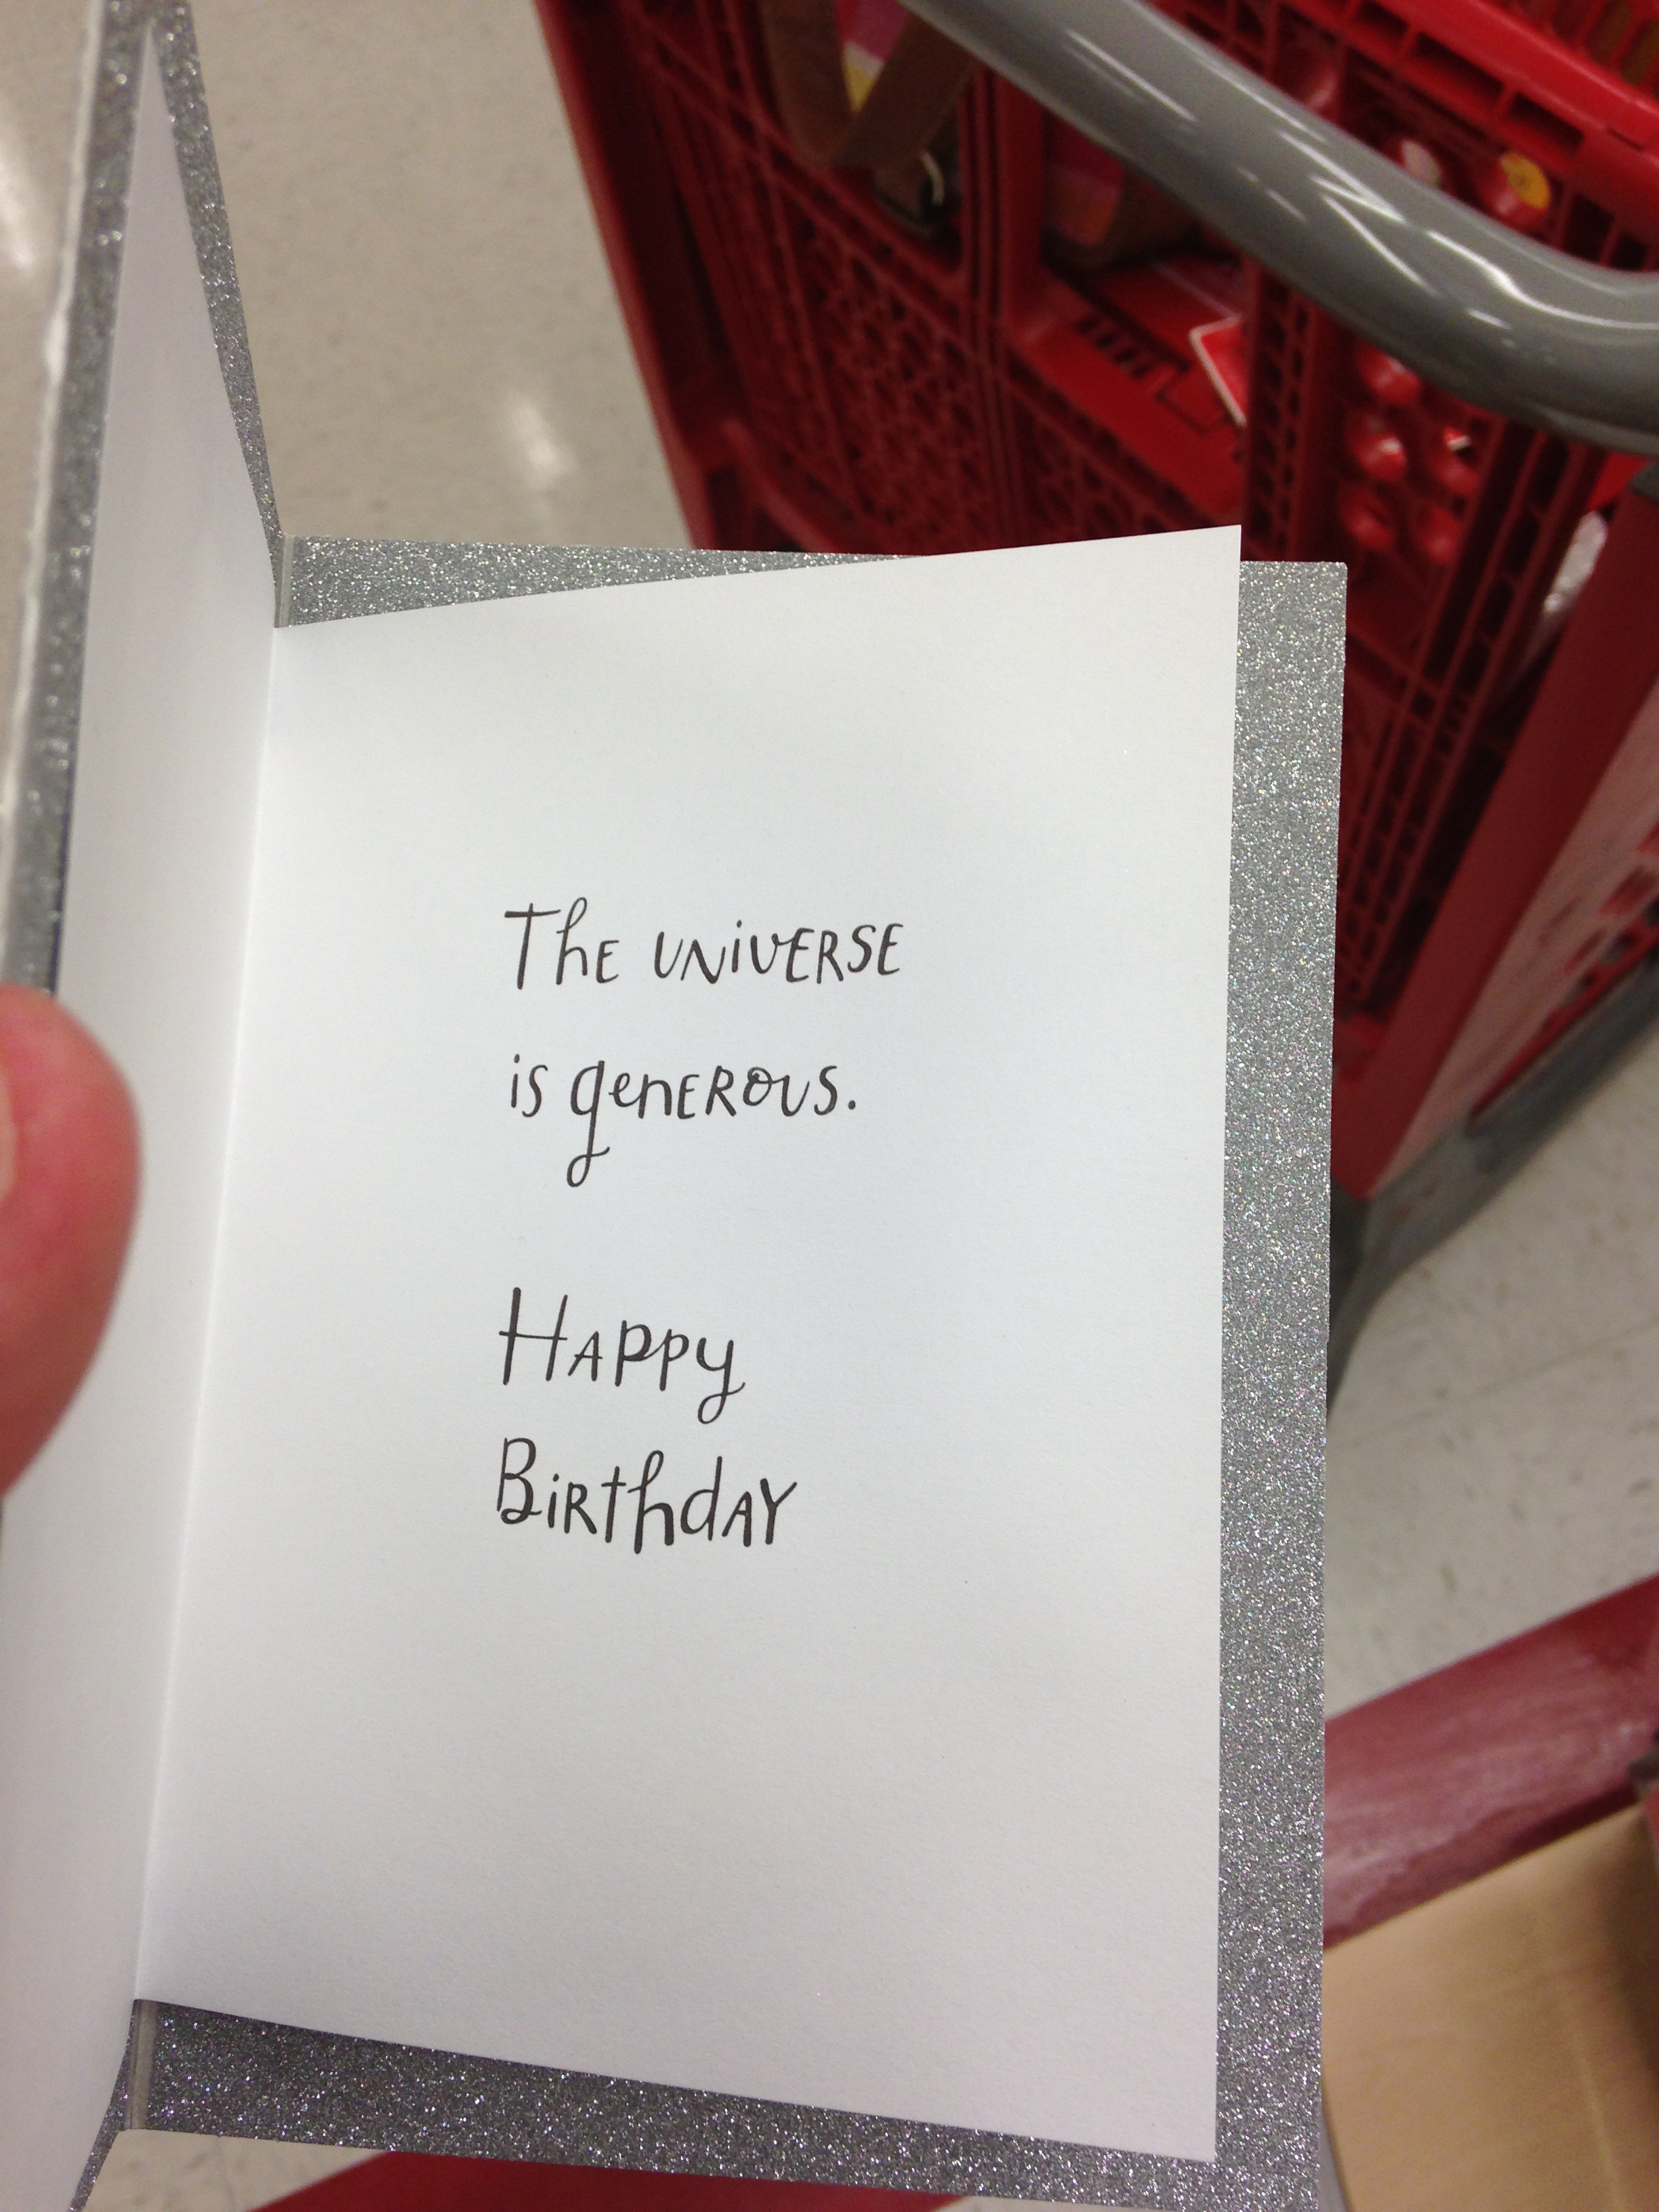 The UNiVERSE
is generous.
Happy
Birthday